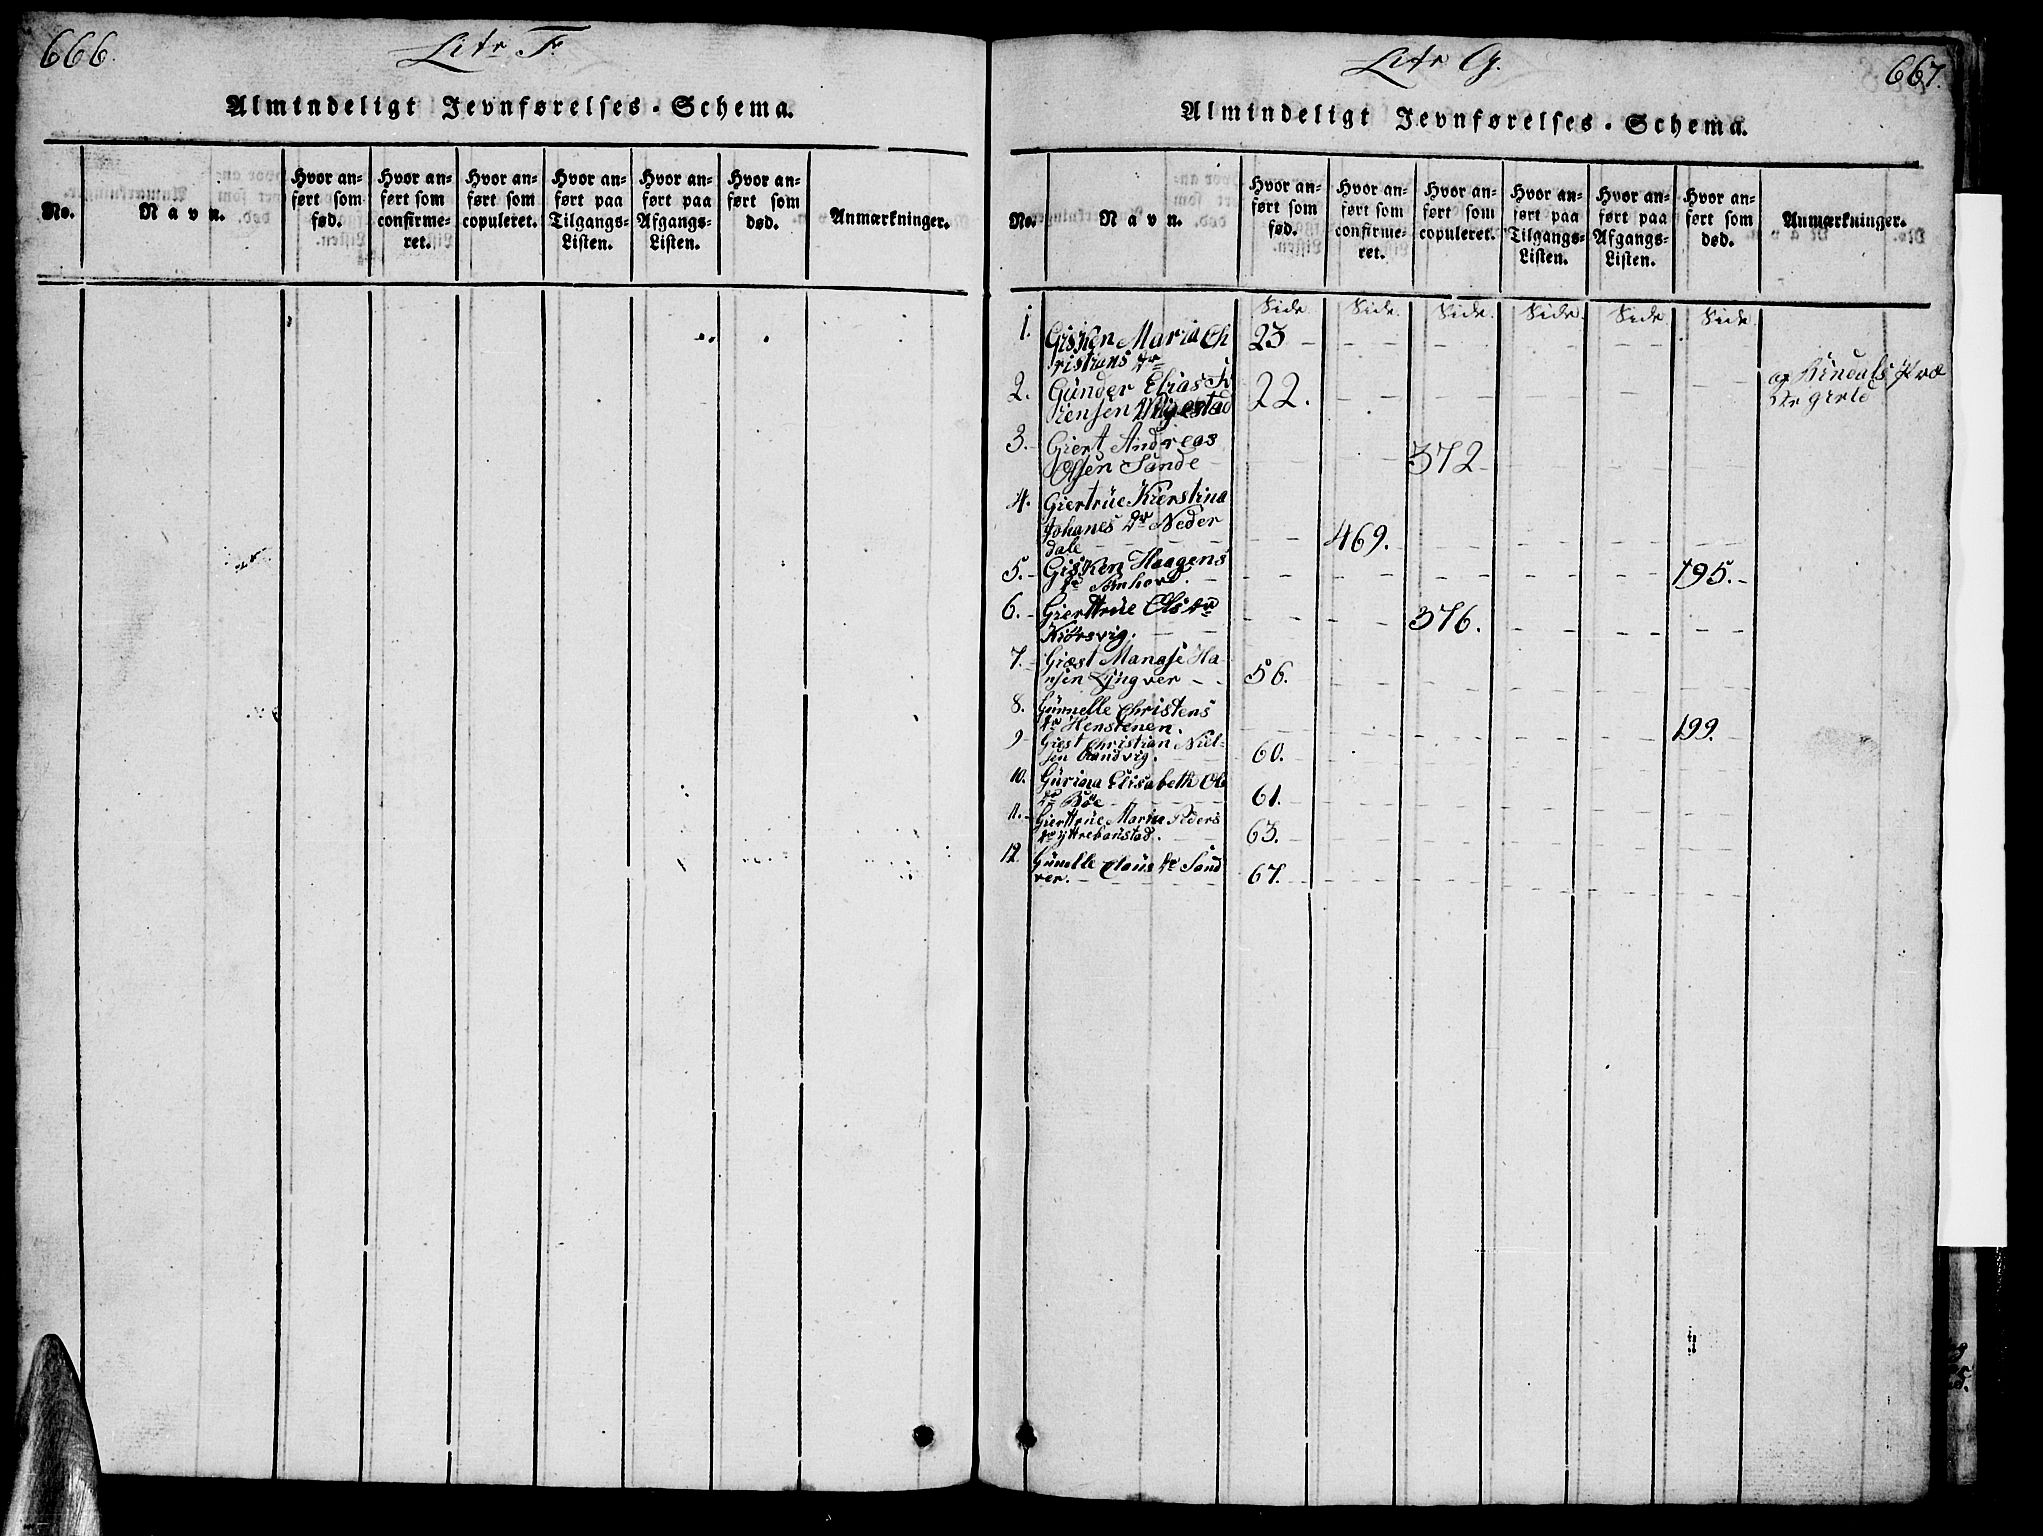 666.
Litr F.
Almindeligt Jevnførelses-Schema.
No.
Navn.
Hvor an-
ført som
fød.
Hvor an-
ført som
confirme-
ret.
Hvor an-
ført som
copuleret.
Hvor an-
ført paa
Tilgangs-
Listen.
Hvor an-
ført paa
Afgangs-
Listen.
Hvor an-
ført som
død.
Anmærkninger.
Litr G.
667.
Almindeligt Jevnførelses-Schema.
No.
Navn.
Hvor an-
ført som
fød.
Hvor an-
ført som
confirme-
ret.
Hvor an-
ført som
copuleret.
Hvor an-
ført paa
Tilgangs-
Listen.
Hvor an-
ført paa
Afgangs-
Listen.
Hvor an-
ført som
død.
Anmærkninger.
Side Side Side Side Side Side
1. Gisken Maria Ch 23
ristians dr
2. Günder Elias
Jensen 22.
3. Giert Andreas
Olsen Sande 372
4. Giertrüe Kierstina
Johanes dr Neder
dale 469.
5. Gisken Haagens
dr 195.
6. Gierttrüe Ols dr
376.
7. Giæst Manase Ha-
nsen Lyngver 56.
8. Günnelle Christens
dr Henstenen. 199.
9 Giest Christian Niel-
sen Sandvig. 60.
10. Güriana Elisabeth Ols
dr Bøe 61.
11. Gierttrüe Marie Peders
dr Yttrebørstad. 63.
12. Günelle Claus dr Sand
ver. 67.